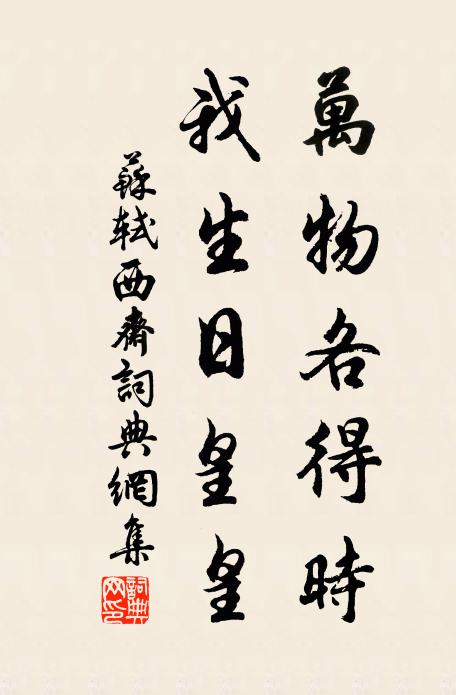 萬物各得時
我生日皇皇
蘇軾西齋詞典網集
詞典网印